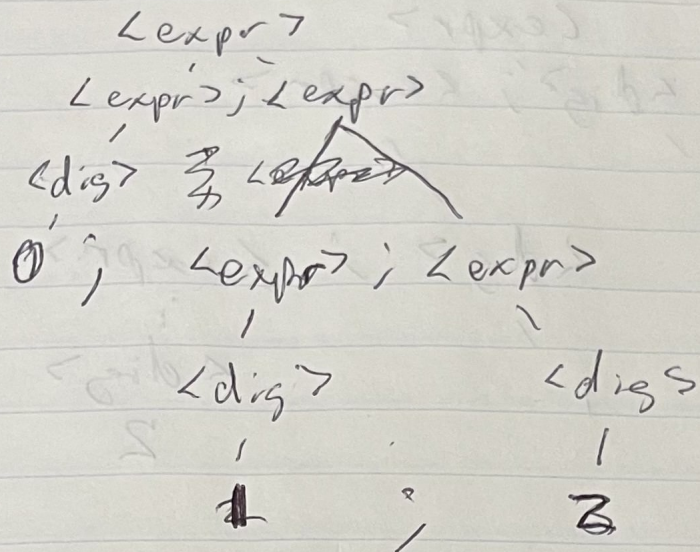 <expr>
<expr> ; <expr>
<dig>
0 ; <expr> ; <expr>
<dig> <dig>
1 ;